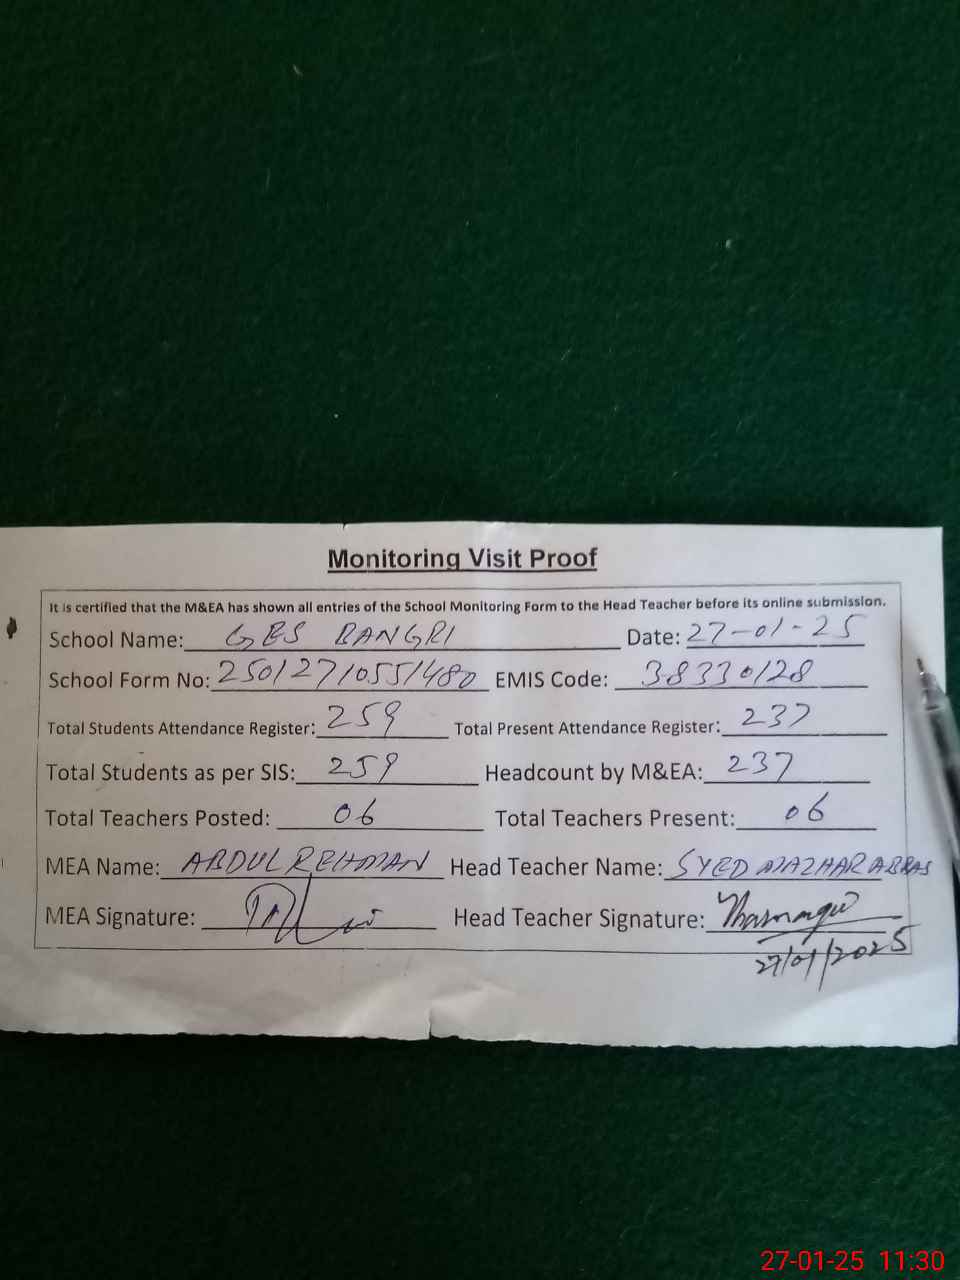 Monitoring Visit Proof
It is certified that the M&EA has shown all entries of the School Monitoring Form to the Head Teacher before its online submission.
School Name: GES BANGRI Date: 27-01-25
School Form No: 25012710551480 EMIS Code: 38330128
Total Students Attendance Register: 259 Total Present Attendance Register: 237
Total Students as per SIS: 259 Headcount by M&EA: 237
Total Teachers Posted: 06 Total Teachers Present: 06
MEA Name: ABDUL REHMAN Head Teacher Name: SYED MAZHAR ABBAS
MEA Signature: Head Teacher Signature:
27/01/2025
27-01-25 11:30